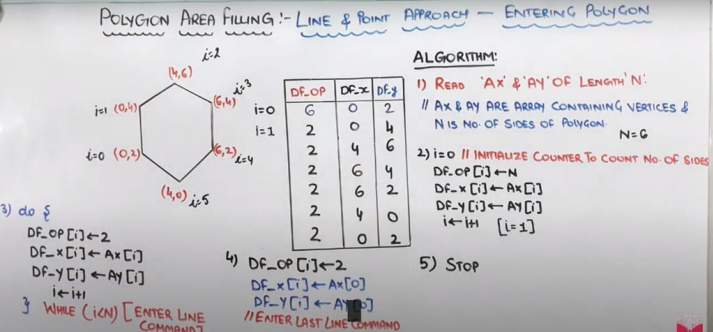 POLYGION AREA FILLING :- LINE & POINT APPROACH - ENTERING POLYGON
i=2
(4,6)
i=3
i=1 (0,4)
(6,4)
i=0 (0,2)
(6,2) i=4
(4,0) i=5
DF_OP DF_x DF_y
i=0 6 0 2
i=1 2 0 4
2 4 6
2 6 4
2 6 2
2 4 0
2 0 2
ALGORITHM:
1) READ 'AX' & 'AY' OF LENGTH 'N'.
// AX & AY ARE ARRAY CONTAINING VERTICES &
N IS NO. OF SIDES OF POLYGON.
N=6
2) i=0 // INITIALIZE COUNTER TO COUNT NO. OF SIDES
DF_OP [i] ← N
DF_x [i] ← AX[i]
DF_Y [i] ← AY[i]
i ← i+1 [i=1]
3) do {
DF_OP [i] ← 2
DF_x [i] ← AX [i]
DF_Y [i] ← AY [i]
i ← i+1
} WHILE (i<N) [ENTER LINE
COMMAND]
4) DF_OP [i] ← 2
DF_x [i] ← AX[0]
DF_Y [i] ← AY[0]
// ENTER LAST LINE COMMAND
5) STOP